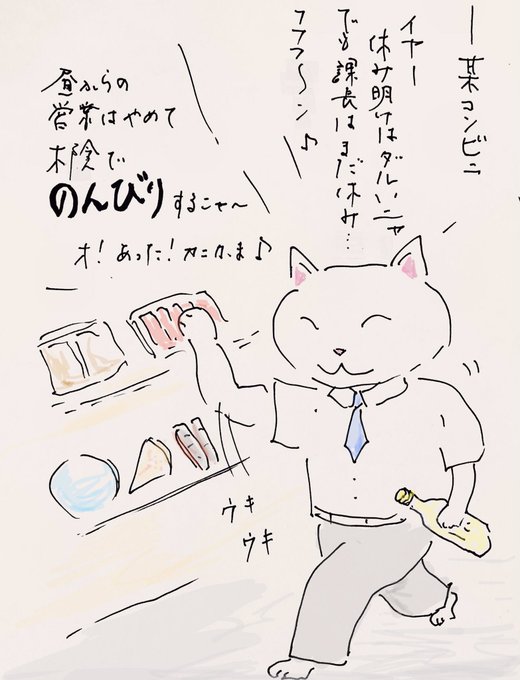 ―某コンビニ
イヤー
休み明けはダルいニャ
でも課長はまだ休み…
フフフ〜ン♪
昼からの
営業はやめて
木陰で
のんびりするニャ〜
オ！あった！カニカま♪
ウキ
ウキ